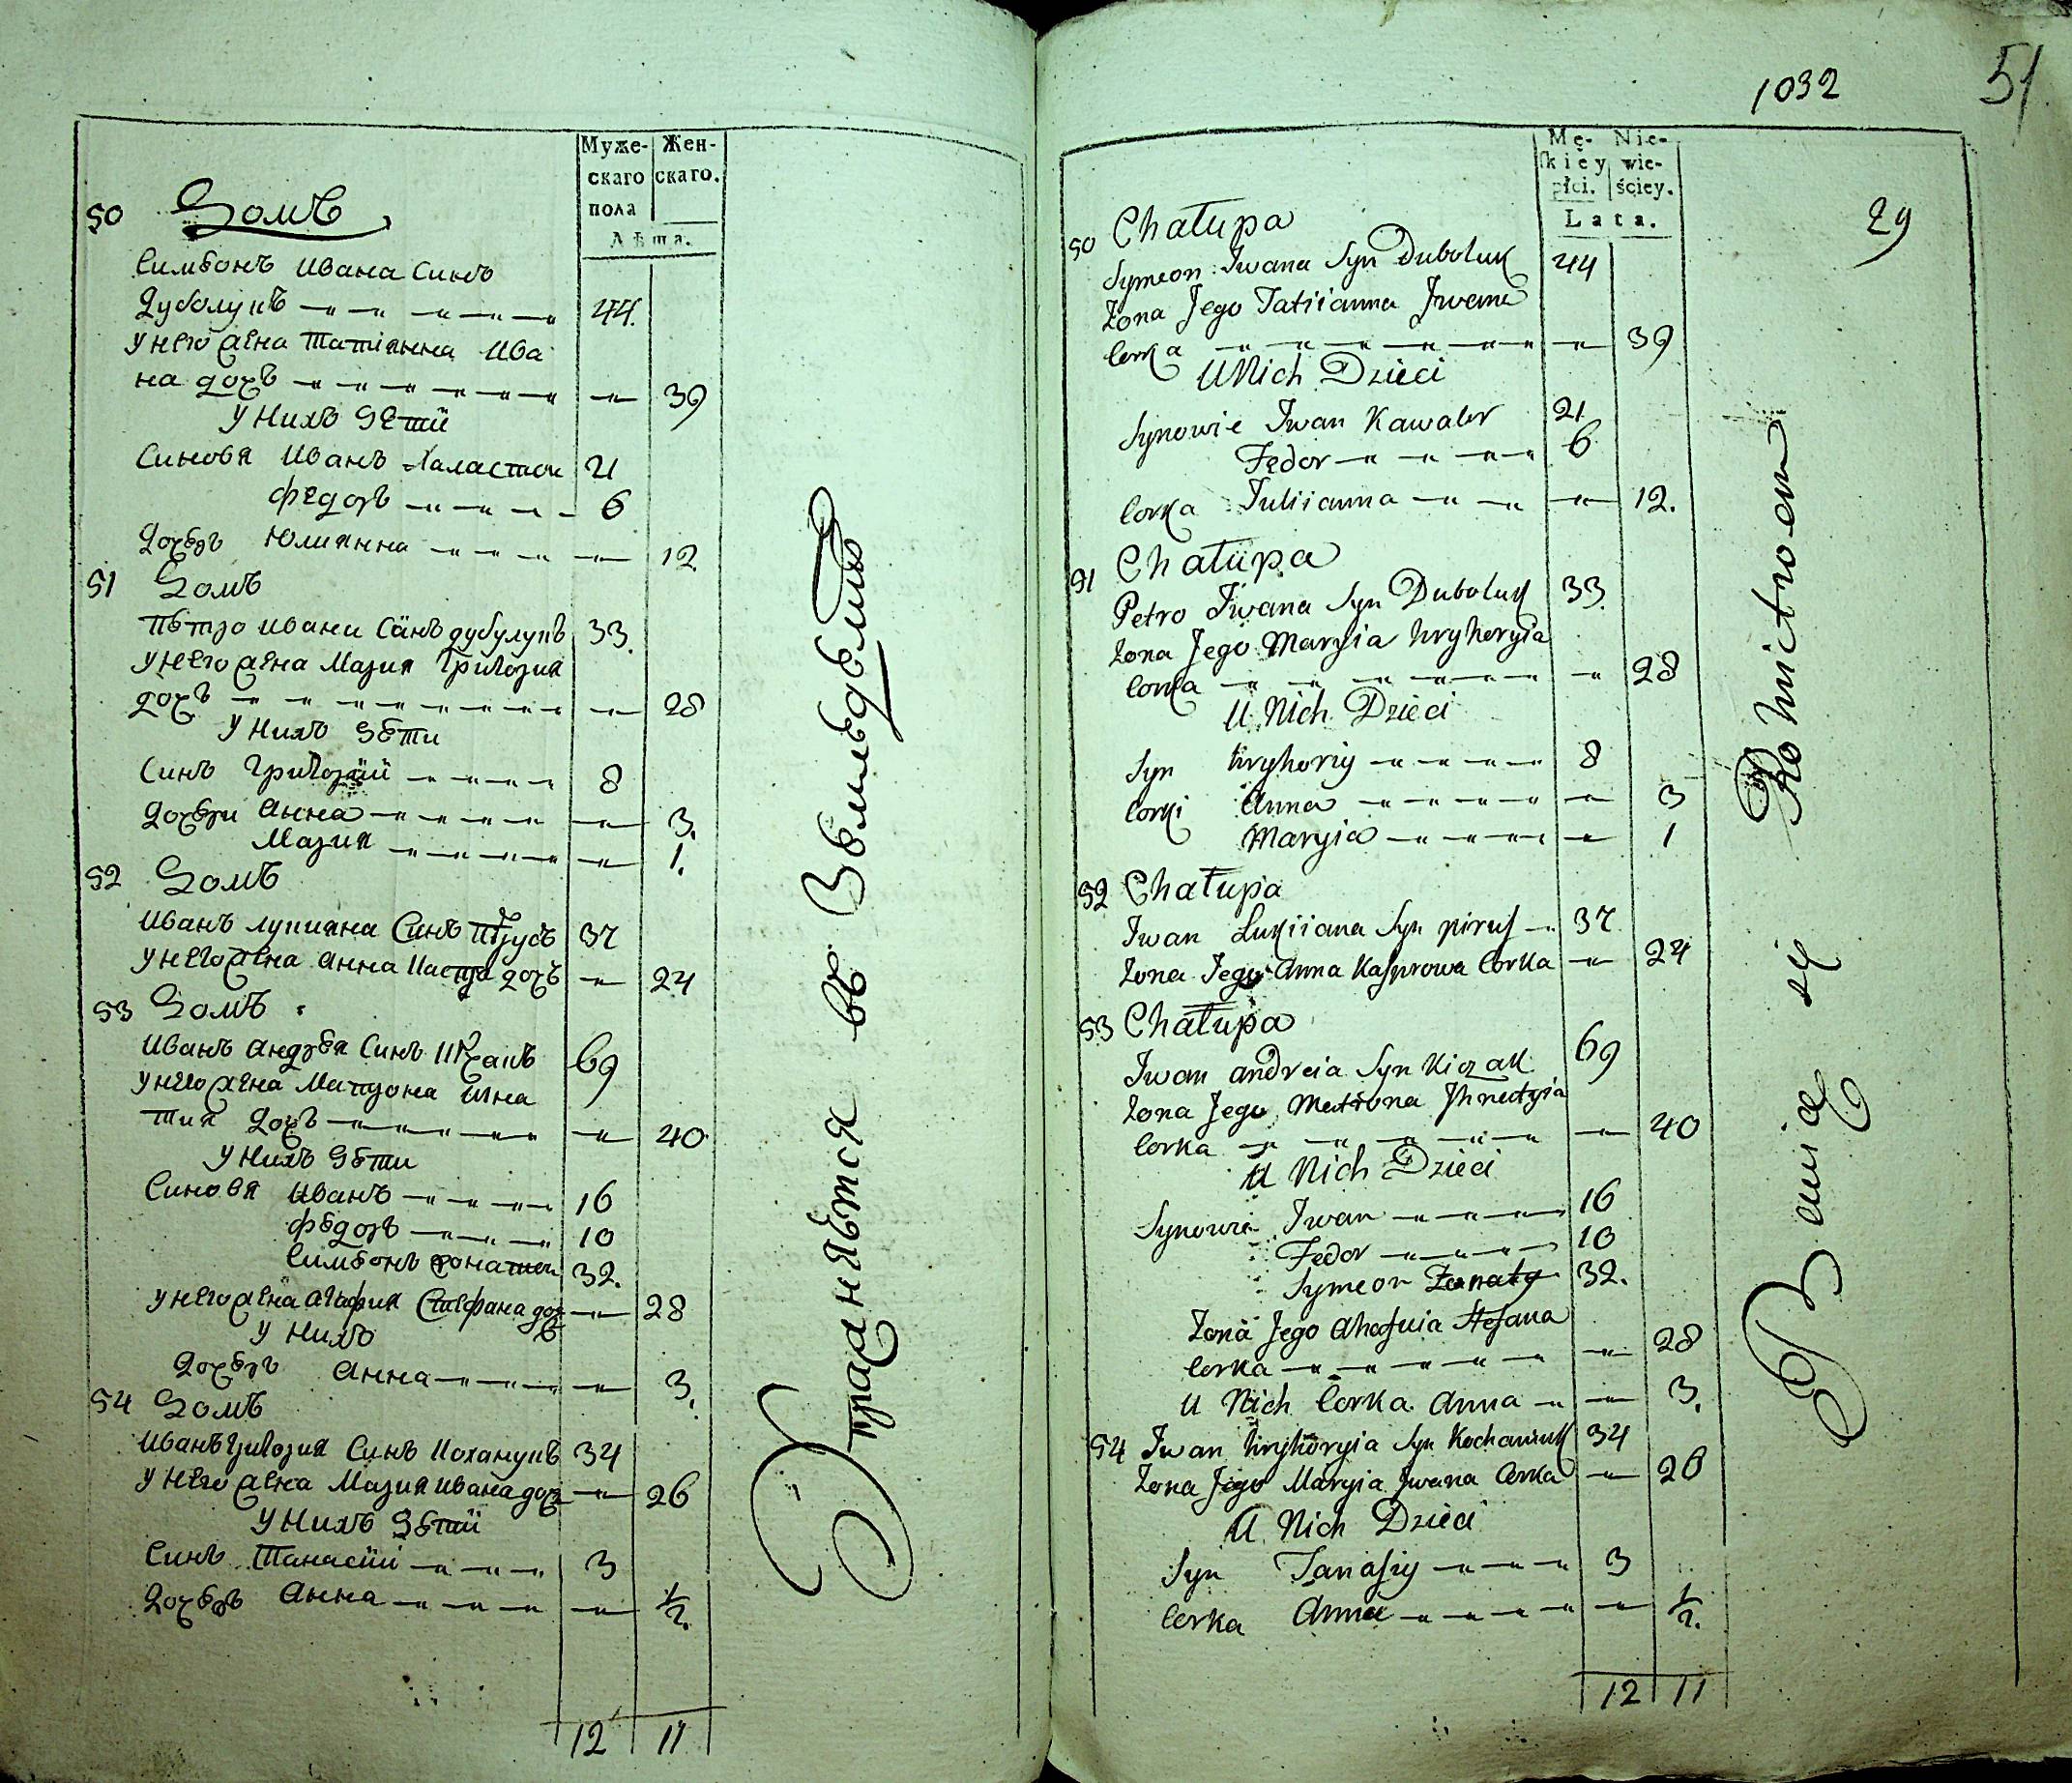 Муже- Жен-
скаго скаго.
пола
Лѣта.
50 Домъ
Симеонъ Ивана Синъ
Дуболукъ 44.
У него жена Татіянна Ива
на дочъ 39
У нихъ дети
Синовя Иванъ Халастои 21
Федоръ 6
Дочеръ Юлиянна 12
51 Домъ
Петро Ивана Синъ Дубулукъ 33.
У него жена Мария Григория
дочъ 28
У нихъ дѣти
Синъ Григорій 8
Дочери Анна 3.
Мария 1.
52 Домъ
Иванъ Лукияна Синъ 37
У него жена Анна дочъ 24
53 Домъ
Иванъ Андрѣя Синъ Кѣчакъ 69
У него жена Матрона Игна
тия дочъ 40
У нихъ дѣти
Синовя Иванъ 16
Федоръ 10
Симеонъ жонатои 32.
У него жена Агафия Стефана доч 28
У нихъ
Дочеръ Анна 3.
54 Домъ
Иванъ Григория Синъ Коханукъ 34
У него жена Мария Ивана доч 26
У нихъ дѣтй
Синъ Танасій 3
Дочеръ Анна 1/2.
12 11
Упраняѣтся въ Земледелию
1032
51
29
Mę- Nie-
skiey wie-
płci. ściey.
Lata.
50 Chałupa
Symeon Iwana Syn Duboluk 44
Żona Jego Tatiianna Iwana
Corka 39
U Nich Dzieci
Synowie Iwan Kawaler 21
Fedor 6
Corka Juliianna 12.
51 Chałupa
Petro Iwana Syn Duboluk 33.
Żona Jego Maryia Hryhoryia
Corka 28
U Nich Dzieci
Syn Hryhoriy 8
Corki Anna 3
Maryia 1
52 Chałupa
Iwan Lukiiana Syn 37
Żona Jego Anna Kasprowa Corka 24
53 Chałupa
Iwan Andreia Syn Kiczak 69
Żona Jego Matrona Ihnatyia
Corka 40
U Nich Dzieci
Synowie Iwan 16
Fedor 10
Symeon Żonaty 32.
Żona Jego Ahafuia Stefana
Corka 28
U Nich Corka Anna 3.
54 Iwan Hryhoryia Syn Kochaniuk 34
Żona Jego Maryia Iwana Corka 26
U Nich Dzieci
Syn Tanasiy 3
Corka Anna 1/2.
12 11
Bawią się Rolnictwem